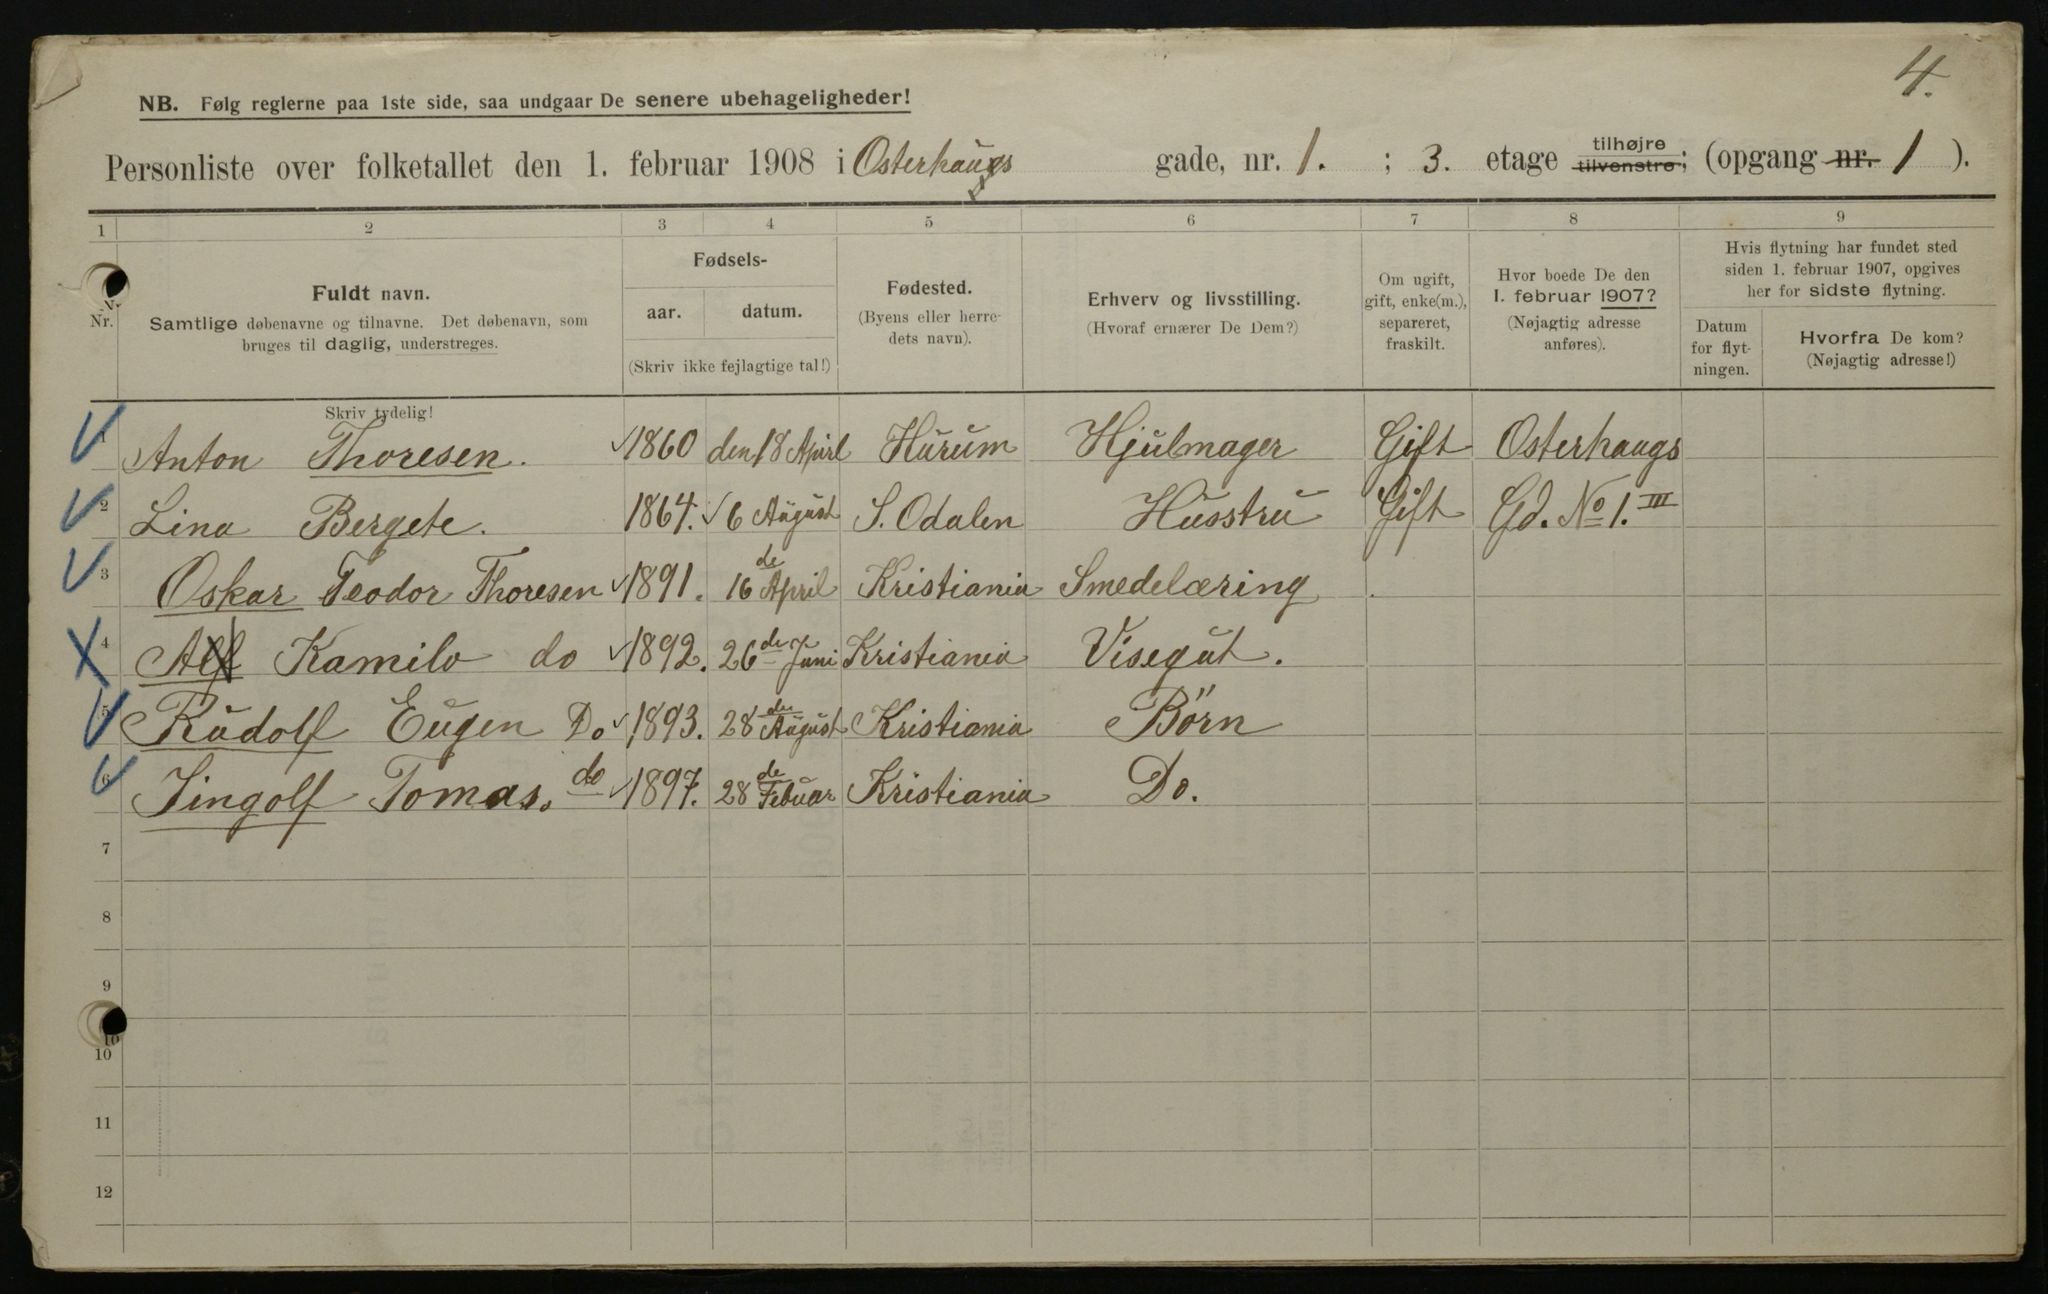 4.
NB. Følg reglerne paa 1ste side, saa undgaar De senere ubehageligheder!
Personliste over folketallet den 1. februar 1908 i Osterhaugs gade, nr. 1. ; 3. etage tilhøjre tilvenstre; (opgang nr. 1 ).
1 2 3 4 5 6 7 8 9
Nr.
Fuldt navn.
Samtlige døbenavne og tilnavne. Det døbenavn, som
bruges til daglig, understreges.
Skriv tydelig!
Fødsels-
aar. datum.
(Skriv ikke fejlagtige tal!)
Fødested.
(Byens eller herre-
dets navn).
Erhverv og livsstilling.
(Hvoraf ernærer De Dem?)
Om ugift,
gift, enke(m.),
separeret,
fraskilt.
Hvor boede De den
1. februar 1907?
(Nøjagtig adresse
anføres).
Hvis flytning har fundet sted
siden 1. februar 1907, opgives
her for sidste flytning.
Datum
for flyt-
ningen.
Hvorfra De kom?
(Nøjagtig adresse!)
1 Anton Thoresen. 1860 den 18 April Hurum Hjulmager Gift Osterhaugs
2 Lina Bergete. 1864. 6 August S. Odalen Husstru Gift Gd. No 1. III
3 Oskar Teodor Thoresen 1891. 16 de April Kristiania Smedelæring
4 Alf Kamilo do 1892. 26 de Juni Kristiania Visegut.
5 Rudolf Eugen Do 1893. 28 de August Kristiania Börn
6 Jingolf Tomas. do 1897. 28 de Februar Kristiania Do.
7
8
9
10
10
11
12